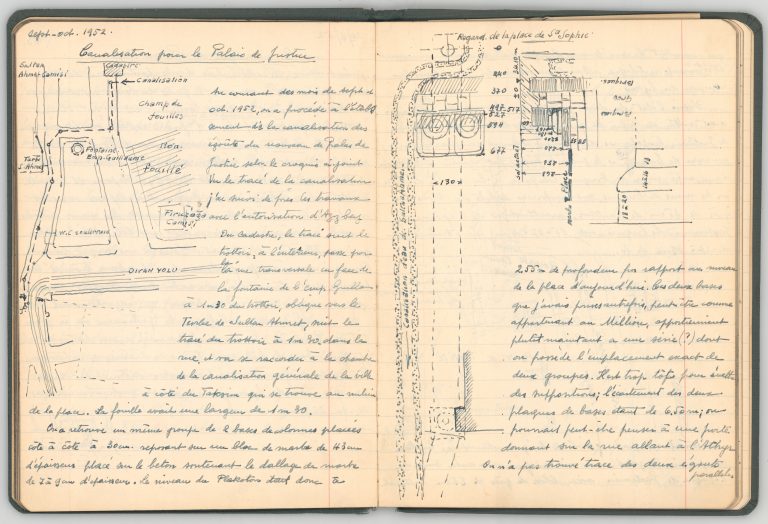 Sept-oct. 1952.
Canalisation pour le Palais de Justice
Sultan
Ahmet Camisi
Cadastre
Canalisation
Champ de
fouilles
Non
fouillé
Fontaine
Emp. Guillaume
Firuzağa
Camisi
W.C. souterrain
DIVAN YOLU
Au courant des mois de sept. et
oct. 1952, on a procédé à
la canalisation des
égouts du nouveau Palais de
Justice selon le croquis ci-joint
le tracé de la canalisation
j'ai suivi de près les travaux
avec l'autorisation d'
Du cadastre, le tracé suit le
trottoir, à l'extérieur, passe par
la rue transversale en face de
la fontaine de l'Emp. Guillaume
à 1m30 du trottoir, oblique vers le
Türbe de Sultan Ahmet, suit le
tracé du trottoir à 1m30 dans la
rue, et va se raccorder à la chambre
de la canalisation générale de la ville
à côté du Taksim qui se trouve au milieu
de la place. La fouille avait une largeur de 1m30.
On a retrouvé un même groupe de 2 bases de colonnes placées
côte à côte à 30cm. reposant sur un bloc de marbre de 43cm
d'épaisseur placé sur le béton soutenant le dallage de marbre
de d'épaisseur. Le niveau du Plakoton étant donc à
Regard de la place de Ste Sophie
0
240
370
497
527
594
677
130
Canalisation
2.55 m de profondeur par rapport au niveau
de la place d'aujourd'hui. Ces deux bases
que j'avais prises autrefois, peut-être comme
appartenant au Million, appartiennent
plutôt maintenant à une série (?) dont
on possède l'emplacement exact de
deux groupes. Il est trop tôt pour
des suppositions; l'écartement des deux
plaques de bases étant de 6.50m; on
pourrait peut-être penser à une porte
donnant sur la rue allant à
On n'a pas trouvé trace des deux égouts
parallèles.